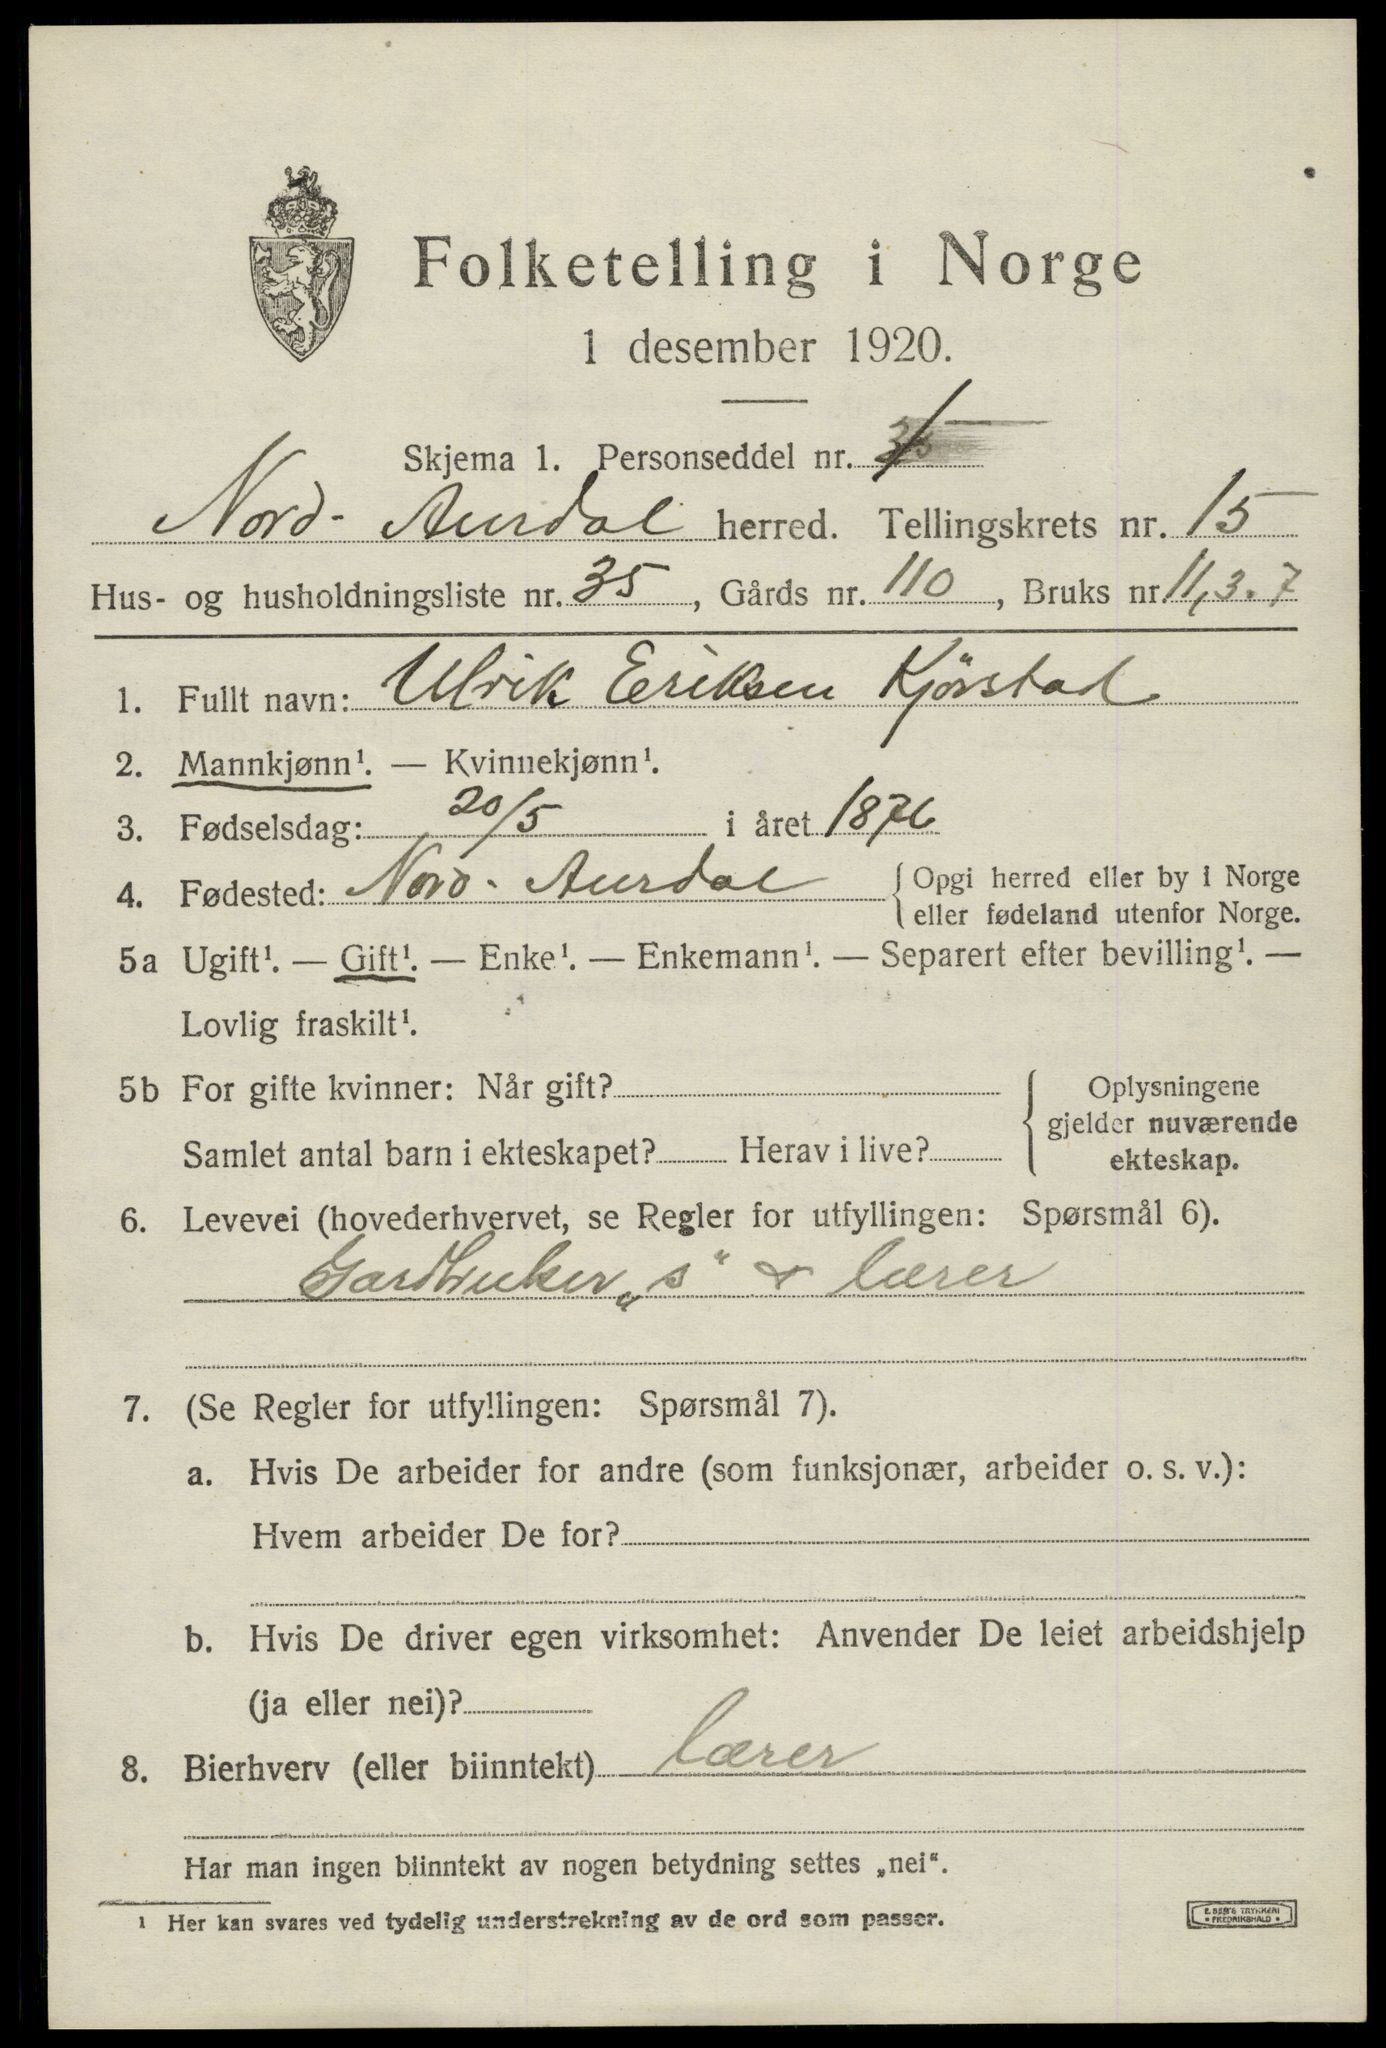 Folketelling i Norge
1 desember 1920.
Skjema 1. Personseddel nr. 1
Nord-Aurdal herred. Tellingskrets nr. 15
Hus- og husholdningsliste nr. 35, Gårds nr. 110, Bruks nr 11,3.7
1. Fullt navn: Ulrik Eriksen Kjörstad
2. Mannkjønn¹. — Kvinnekjønn¹.
3. Fødselsdag: 20/5 i året 1876
4. Fødested: Nord-Aurdal { Opgi herred eller by i Norge
eller fødeland utenfor Norge.
5a Ugift¹. — Gift¹. — Enke¹. — Enkemann¹. — Separert efter bevilling¹. —
Lovlig fraskilt¹.
5b For gifte kvinner: Når gift? { Oplysningene
gjelder nuværende
Samlet antal barn i ekteskapet? Herav i live?
ekteskap.
6. Levevei (hovederhvervet, se Regler for utfyllingen: Spørsmål 6).
Gardbruker „s“ & lærer
7. (Se Regler for utfyllingen: Spørsmål 7).
a. Hvis De arbeider for andre (som funksjonær, arbeider o. s. v.):
Hvem arbeider De for?
b. Hvis De driver egen virksomhet: Anvender De leiet arbeidshjelp
(ja eller nei)?
8. Bierhverv (eller biinntekt) lærer
Har man ingen biinntekt av nogen betydning settes „nei“.
¹ Her kan svares ved tydelig understrekning av de ord som passer.
E. SEM'S TRYKKERI
• FREDRIKSHALD •